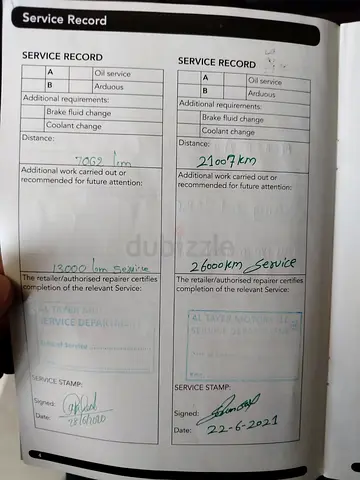 Service Record
SERVICE RECORD
A Oil service
B Arduous
Additional requirements:
Brake fluid change
Coolant change
Distance:
7062 km
Additional work carried out or
recommended for future attention:
13000 km Service
The retailer/authorised repairer certifies
completion of the relevant Service:
AL TAYER MOTORS
SERVICE DEPARTMENT
SERVICE STAMP:
Signed:
Date: 28/6/2020
4
SERVICE RECORD
A Oil service
B Arduous
Additional requirements:
Brake fluid change
Coolant change
Distance:
21007km
Additional work carried out or
recommended for future attention:
26000km Service
The retailer/authorised repairer certifies
completion of the relevant Service:
AL TAYER MOTORS
SERVICE DEPARTMENT
SERVICE STAMP:
Signed:
Date: 22-6-2021
dubizzle